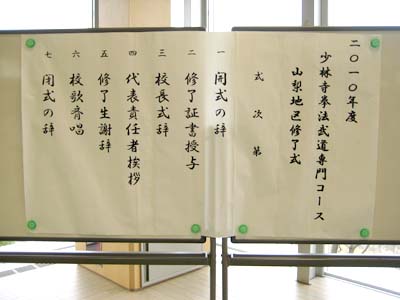 二〇一〇年度
少林寺拳法武道専門コース
山梨地区修了式
式次第
一 開式の辞
二 修了証書授与
三 校長式辞
四 代表責任者挨拶
五 修了生謝辞
六 校歌斉唱
七 閉式の辞